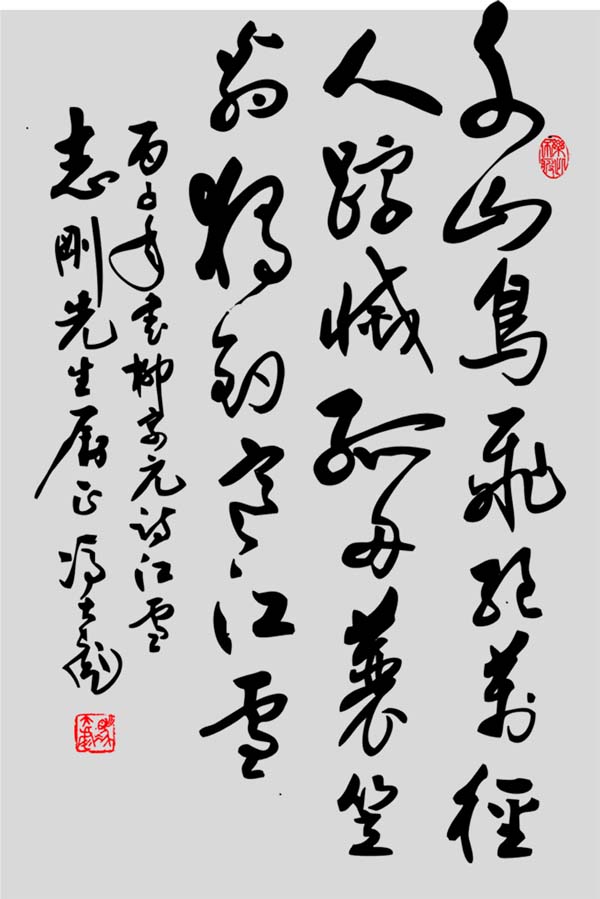 千山鸟飛絕萬徑
人蹤滅孤舟蓑笠
翁獨釣寒江雪
丙子年書柳宗元詩江雪
志剛先生屬正馮大彪